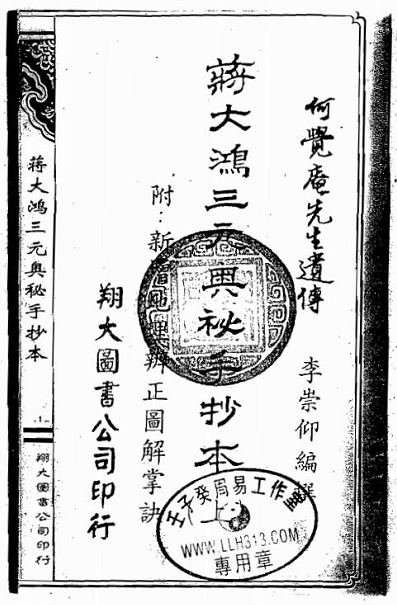 何覺庵先生遺傳
李崇仰編
蔣大鴻三元奥秘手抄本
上
附：新地理辨正圖解掌訣
翔大圖書公司印行
蔣大鴻三元奥秘手抄本
-1-
翔大圖書公司印行
壬子癸周易工作室
WWW.LLH313.COM
專用章